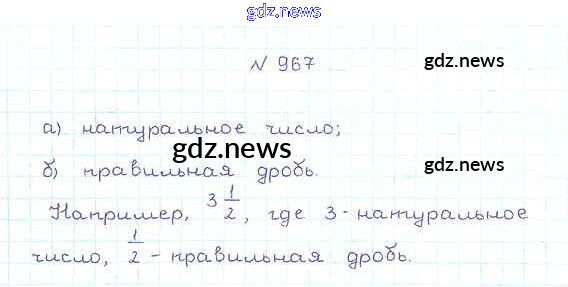 gdz.news
№ 967
gdz.news
а) натуральное число;
gdz.news
б) правильная дробь.
gdz.news
Например, 3 1/2, где 3 - натуральное
число, 1/2 - правильная дробь.